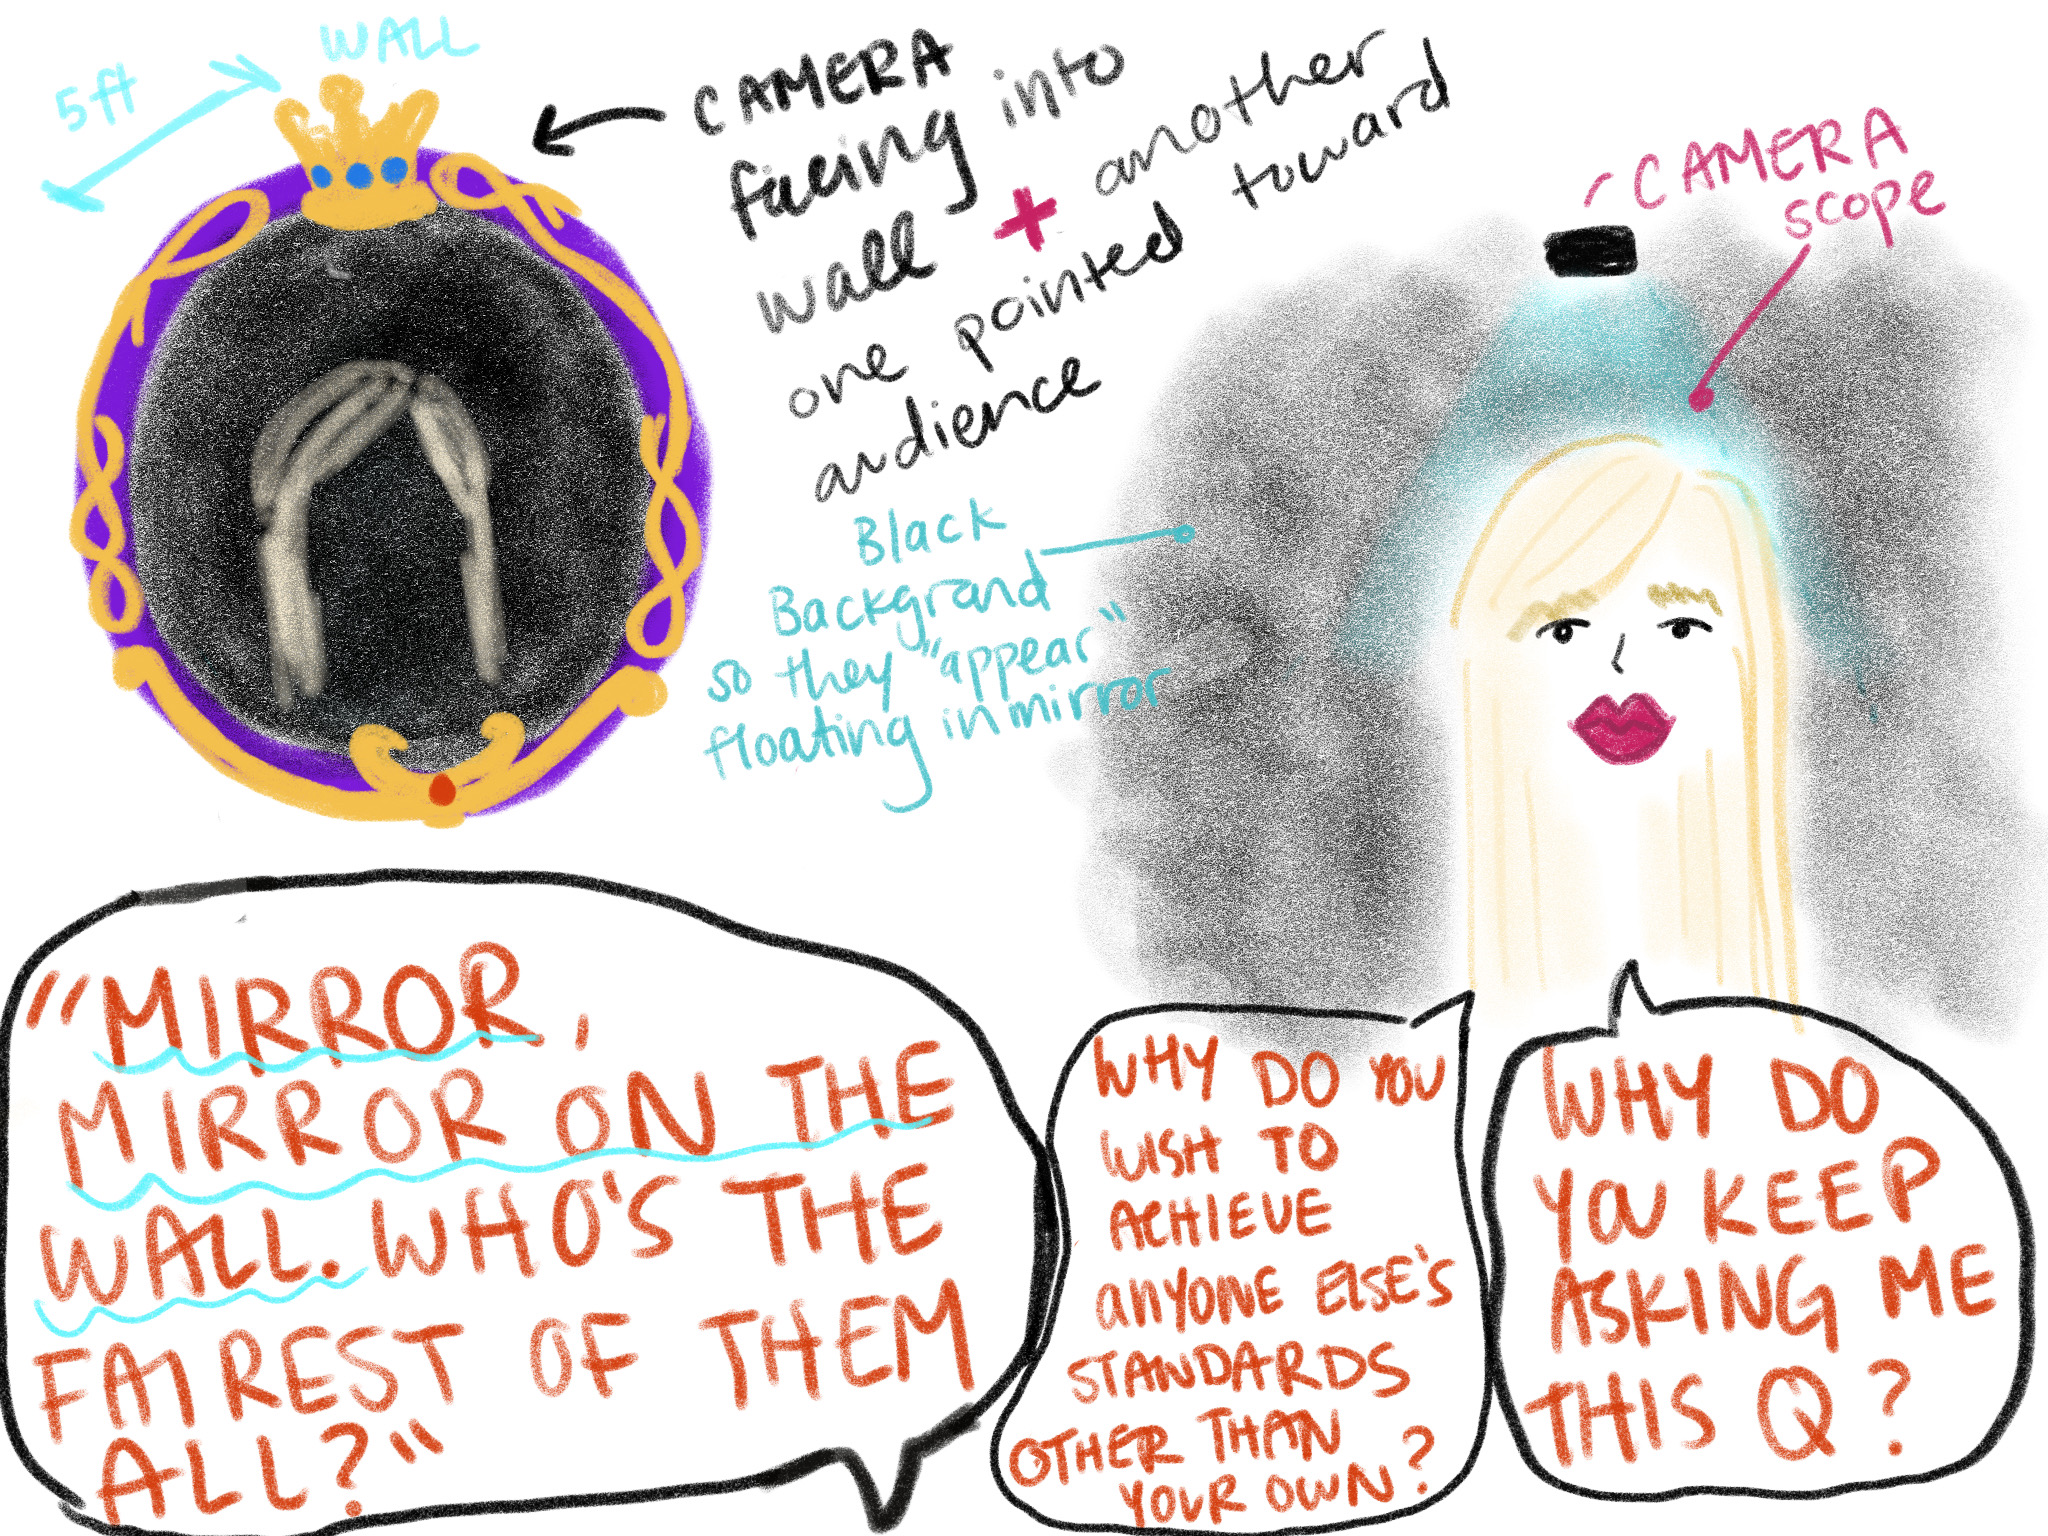 WALL
5ft
CAMERA
facing into
wall + another
one pointed toward
audience
- CAMERA
scope
Black
Backgrand
so they "appear"
floating in mirror
"MIRROR,
MIRROR ON THE
WALL. WHO'S THE
FAIREST OF THEM
ALL?"
WHY DO YOU
WISH TO
ACHIEVE
ANYONE ELSE'S
STANDARDS
OTHER THAN
YOUR OWN?
WHY DO
YOU KEEP
ASKING ME
THIS Q?